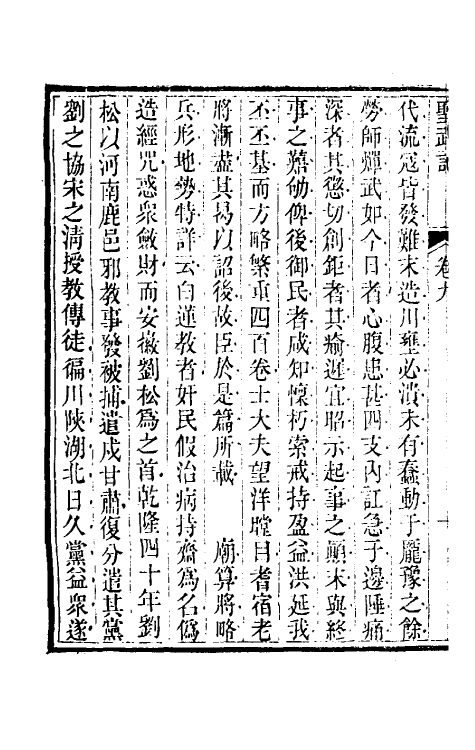 聖武記 卷九
代流寇皆發難末造川壅必潰未有蠢動于龐豫之餘
勞師輝武如今日者心腹患甚四支內訌急于邊陲痛
深者其懲切創鉅者其瘉遲宜昭示起事之顛末與終
事之囏劬俾後御民者咸知懷朽索戒持盈益洪延我
丕丕基而方略繁重四百卷士大夫望洋瞠目耆宿老
將漸盡其曷以詔後故臣於是篇所載 廟算將略
兵形地勢特詳云白蓮教者奸民假治病持齋爲名僞
造經咒惑衆斂財而安徽劉松爲之首乾隆四十年劉
松以河南鹿邑邪教事發被捕遣戍甘肅復分遣其黨
劉之協宋之清授教傳徒徧川陝湖北日久黨益衆遂